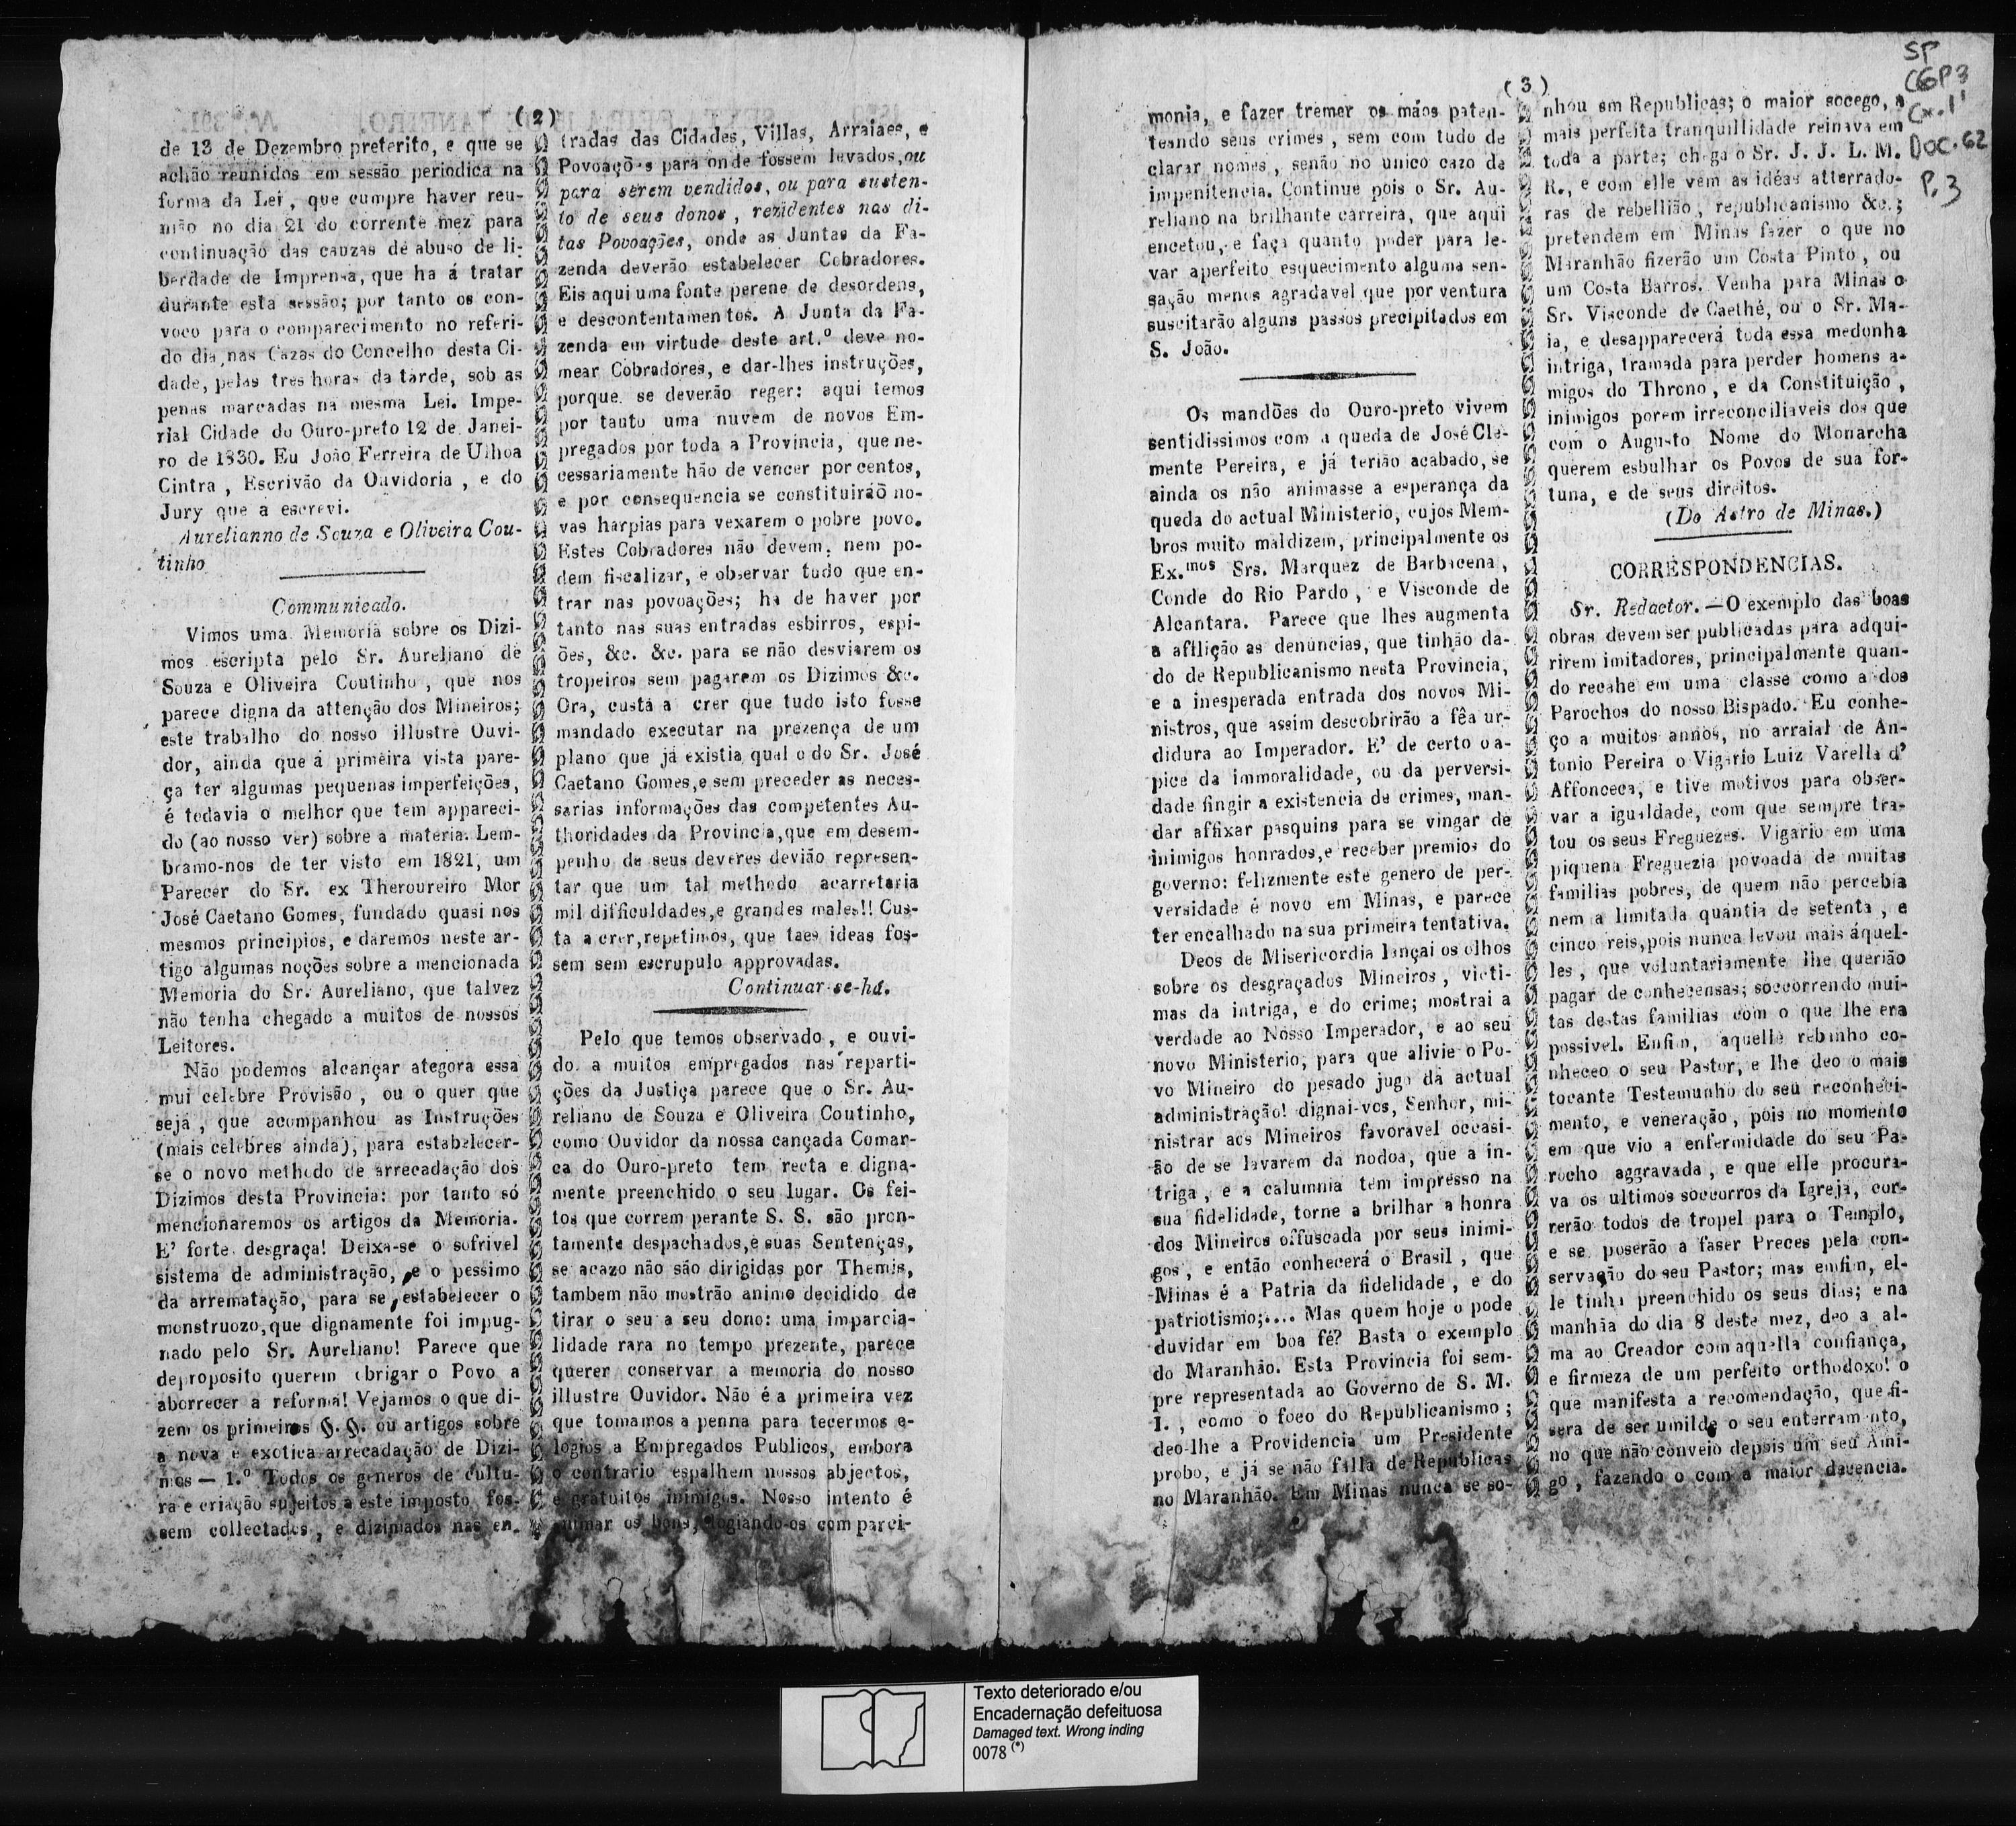 (2)
de 13 de Dezembro preterito, e que se
achão reunidos em sessão periodica na
forma da Lei, que cumpre haver reu-
nião no dia 21 do corrente mez para
continuação das cauzas de abuso de li-
berdade de Imprensa, que ha á tratar
durante esta sessão; por tanto os con-
voco para o comparecimento no referi-
do dia, nas Cazas do Concelho desta Ci-
dade, pelas tres horas da tarde, sob as
penas marcadas na mesma Lei. Impe-
rial Cidade do Ouro-preto 12 de Janei-
ro de 1830. Eu João Ferreira de Ulhoa
Cintra, Escrivão da Ouvidoria, e do
Jury que a escrevi.
Aurelianno de Souza e Oliveira Cou-
tinho
Communicado.
Vimos uma Memoria sobre os Dizi-
mos escripta pelo Sr. Aureliano de
Souza e Oliveira Coutinho, que nos
parece digna da attenção dos Mineiros;
este trabalho do nosso illustre Ouvi-
dor, ainda que á primeira vista pare-
ça ter algumas pequenas imperfeições,
é todavia o melhor que tem appareci-
do (ao nosso ver) sobre a materia. Lem-
bramo-nos de ter visto em 1821, um
Parecer do Sr. ex Theroureiro Mor
José Caetano Gomes, fundado quasi nos
mesmos principios, e daremos neste ar-
tigo algumas noções sobre a mencionada
Memoria do Sr. Aureliano, que talvez
não tenha chegado a muitos de nossos
Leitores.
Não podemos alcançar ategora essa
mui celebre Provisão, ou o quer que
seja, que acompanhou as Instruções
(mais celebres ainda), para estabelecer-
se o novo methodo de arrecadação dos
Dizimos desta Provincia: por tanto só
mencionaremos os artigos da Memoria.
E' forte desgraça! Deixa-se o sofrivel
sistema de administração, e o pessimo
da arrematação, para se estabelecer o
monstruozo, que dignamente foi impug-
nado pelo Sr. Aureliano! Parece que
deproposito querem obrigar o Povo a
aborrecer a reforma! Vejamos o que di-
zem os primeiros §. §. ou artigos sobre
a nova e exotica arrecadação de Dizi-
mos — 1.º Todos os generos de cultu-
ra e criação sujeitos a este imposto fos-
sem collectados, e dizimados nas en-
tradas das Cidades, Villas, Arraiaes, e
Povoações para onde fossem levados, ou
para serem vendidos, ou para susten-
to de seus donos, rezidentes nas di-
tas Povoações, onde as Juntas da Fa-
zenda deverão estabelecer Cobradores.
Eis aqui uma fonte perene de desordens,
e descontentamentos. A Junta da Fa-
zenda em virtude deste art.º deve no-
mear Cobradores, e dar-lhes instruções,
porque se deverão reger: aqui temos
por tauto uma nuvem de novos Em-
pregados por toda a Provincia, que ne-
cessariamente hão de vencer por centos,
e por consequencia se constituiráõ no-
vas harpias para vexarem o pobre povo.
Estes Cobradores não devem, nem po-
dem fiscalizar, e observar tudo que en-
trar nas povoações; ha de haver por
tanto nas suas entradas esbirros, espi-
ões, &c. &c. para se não desviarem os
tropeiros sem pagarem os Dizimos &c.
Ora, custa a crer que tudo isto fosse
mandado executar na prezença de um
plano que já existia qual o do Sr. José
Caetano Gomes, e sem preceder as neces-
sarias informações das competentes Au-
thoridades da Provincia, que em desem-
penho de seus deveres devião represen-
tar que um tal methodo acarretaria
mil difficuldades, e grandes males!! Cus-
ta a crer, repetimos, que taes ideas fos-
sem sem escrupulo approvadas.
Continuar-se-há.
Pelo que temos observado, e ouvi-
do a muitos empregados nas reparti-
ções da Justiça parece que o Sr. Au-
reliano de Souza e Oliveira Coutinho,
como Ouvidor da nossa cançada Comar-
ca do Ouro-preto tem recta e digna-
mente preenchido o seu lugar. Os fei-
tos que correm perante S. S. são pron-
tamente despachados, e suas Sentenças,
se acazo não são dirigidas por Themis,
tambem não mostrão animo decidido de
tirar o seu a seu dono: uma imparcia-
lidade rara no tempo prezente, parece
querer conservar a memoria do nosso
illustre Ouvidor. Não é a primeira vez
que tomamos a penna para tecermos e-
logios a Empregados Publicos, embora
o contrario espalhem nossos abjectos,
e gratuitos inimigos. Nosso intento é
animar os bons, elogiando-os com parci-
(3)
monia, e fazer tremer os máos paten-
teando seus crimes, sem com tudo de
clarar nomes, senão no unico cazo de
impenitencia. Continue pois o Sr. Au-
reliano na brilhante carreira, que aqui
encetou, e faça quanto puder para le-
var aperfeito esquecimento alguma sen-
sação menos agradavel que por ventura
suscitarão alguns passos precipitados em
S. João.
Os mandões do Ouro-preto vivem
sentidissimos com a queda de José Cle-
mente Pereira, e já terião acabado, se
ainda os não animasse a esperança da
queda do actual Ministerio, cujos Mem-
bros muito maldizem, principalmente os
Ex.mos Srs. Marquez de Barbacena,
Conde do Rio Pardo, e Visconde de
Alcantara. Parece que lhes augmenta
a aflição as denuncias, que tinhão da-
do de Republicanismo nesta Provincia,
e a inesperada entrada dos novos Mi-
nistros, que assim descobrirão a fêa ur-
didura ao Imperador. E' de certo o a-
pice da immoralidade, ou da perversi-
dade fingir a existencia de crimes, man-
dar affixar pasquins para se vingar de
inimigos honrados, e receber premios do
governo: felizmente este genero de per-
versidade é novo em Minas, e parece
ter encalhado na sua primeira tentativa.
Deos de Misericordia lançai os olhos
sobre os desgraçados Mineiros, victi-
mas da intriga, e do crime; mostrai a
verdade ao Nosso Imperador, e ao seu
novo Ministerio, para que alivie o Po-
vo Mineiro do pesado jugo da actual
administração! dignai-vos, Senhor, mi-
nistrar aos Mineiros favoravel occasi-
ão de se lavarem da nodoa, que a in-
triga, e a calumnia tem impresso na
sua fidelidade, torne a brilhar a honra
dos Mineiros offuscada por seus inimi-
gos, e então conhecerá o Brasil, que
Minas é a Patria da fidelidade, e do
patriotismo;.... Mas quem hoje o pode
duvidar em boa fé? Basta o exemplo
do Maranhão. Esta Provincia foi sem-
pre representada ao Governo de S. M.
I., como o foco do Republicanismo;
deo-lhe a Providencia um Presidente
probo, e já se não falla de Republicas
no Maranhão. Em Minas nunca se so-
nhou em Republicas; o maior socego, a
mais perfeita tranquillidade reinava em
toda a parte; chega o Sr. J. J. L. M.
R., e com elle vem as idéas atterrado-
ras de rebellião, republicanismo &c.;
pretendem em Minas fazer o que no
Maranhão fizerão um Costa Pinto, ou
um Costa Barros. Venha para Minas o
Sr. Visconde de Caethé, ou o Sr. Ma-
ia, e desapparecerá toda essa medonha
intriga, tramada para perder homens a-
migos do Throno, e da Constituição,
inimigos porem irreconciliaveis dos que
com o Augusto Nome do Monarcha
querem esbulhar os Povos de sua for-
tuna, e de seus direitos.
(Do Astro de Minas.)
CORRESPONDENCIAS.
Sr. Redactor.—O exemplo das boas
obras devem ser publicadas para adqui-
rirem imitadores, principalmente quan-
do recahe em uma classe como a dos
Parochos do nosso Bispado. Eu conhe-
ço a muitos annos, no arraial de An-
tonio Pereira o Vigario Luiz Varella d'
Affonceca, e tive motivos para obser-
var a igualdade, com que sempre tra-
tou os seus Freguezes. Vigario em uma
piquena Freguezia povoada de muitas
familias pobres, de quem não percebia
nem a limitada quantia de setenta, e
cinco reis, pois nunca levou mais áquel-
les, que voluntariamente lhe querião
pagar de conhecensas; soccorrendo mui-
tas destas familias com o que lhe era
possivel. Enfim, aquelle rebinho co-
nheceo o seu Pastor, e lhe deo o mais
tocante Testemunho do seu reconheci-
mento, e veneração, pois no momento
em que vio a enfermidade do seu Pa-
rocho aggravada, e que elle procura-
va os ultimos soccorros da Igreja, cor-
rerão todos de tropel para o Templo,
e se poserão a faser Preces pela con-
servação do seu Pastor; mas emfim, el-
le tinha preenchido os seus dias; e na
manhãa do dia 8 deste mez, deo a al-
ma ao Creador com aquella confiança,
e firmeza de um perfeito orthodoxo! o
que manifesta a recomendação, que fi-
sera de ser umilde o seu enterramento,
no que não conveio depois um seu Ami-
go, fazendo o com a maior decencia.
SP
CGP3
Cx. 1
DOC. 62
P. 3
Texto deteriorado e/ou
Encadernação defeituosa
Damaged text. Wrong inding
0078 (*)